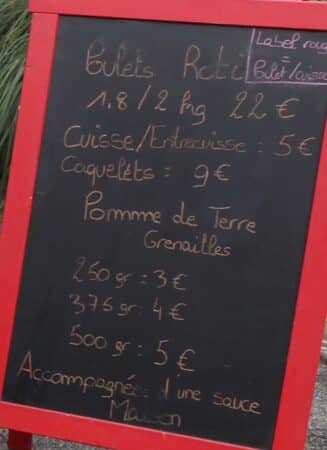 Label roug
=
Poulet/cuisse
Pulets Roti
1.8/2 kg 22 €
Cuisse/Entrecuisse : 5 €
Coquelets = 9 €
Pommme de Terre
Grenailles
250 gr : 3 €
375 gr : 4 €
500 gr : 5 €
Accompagnées d'une sauce
Maison